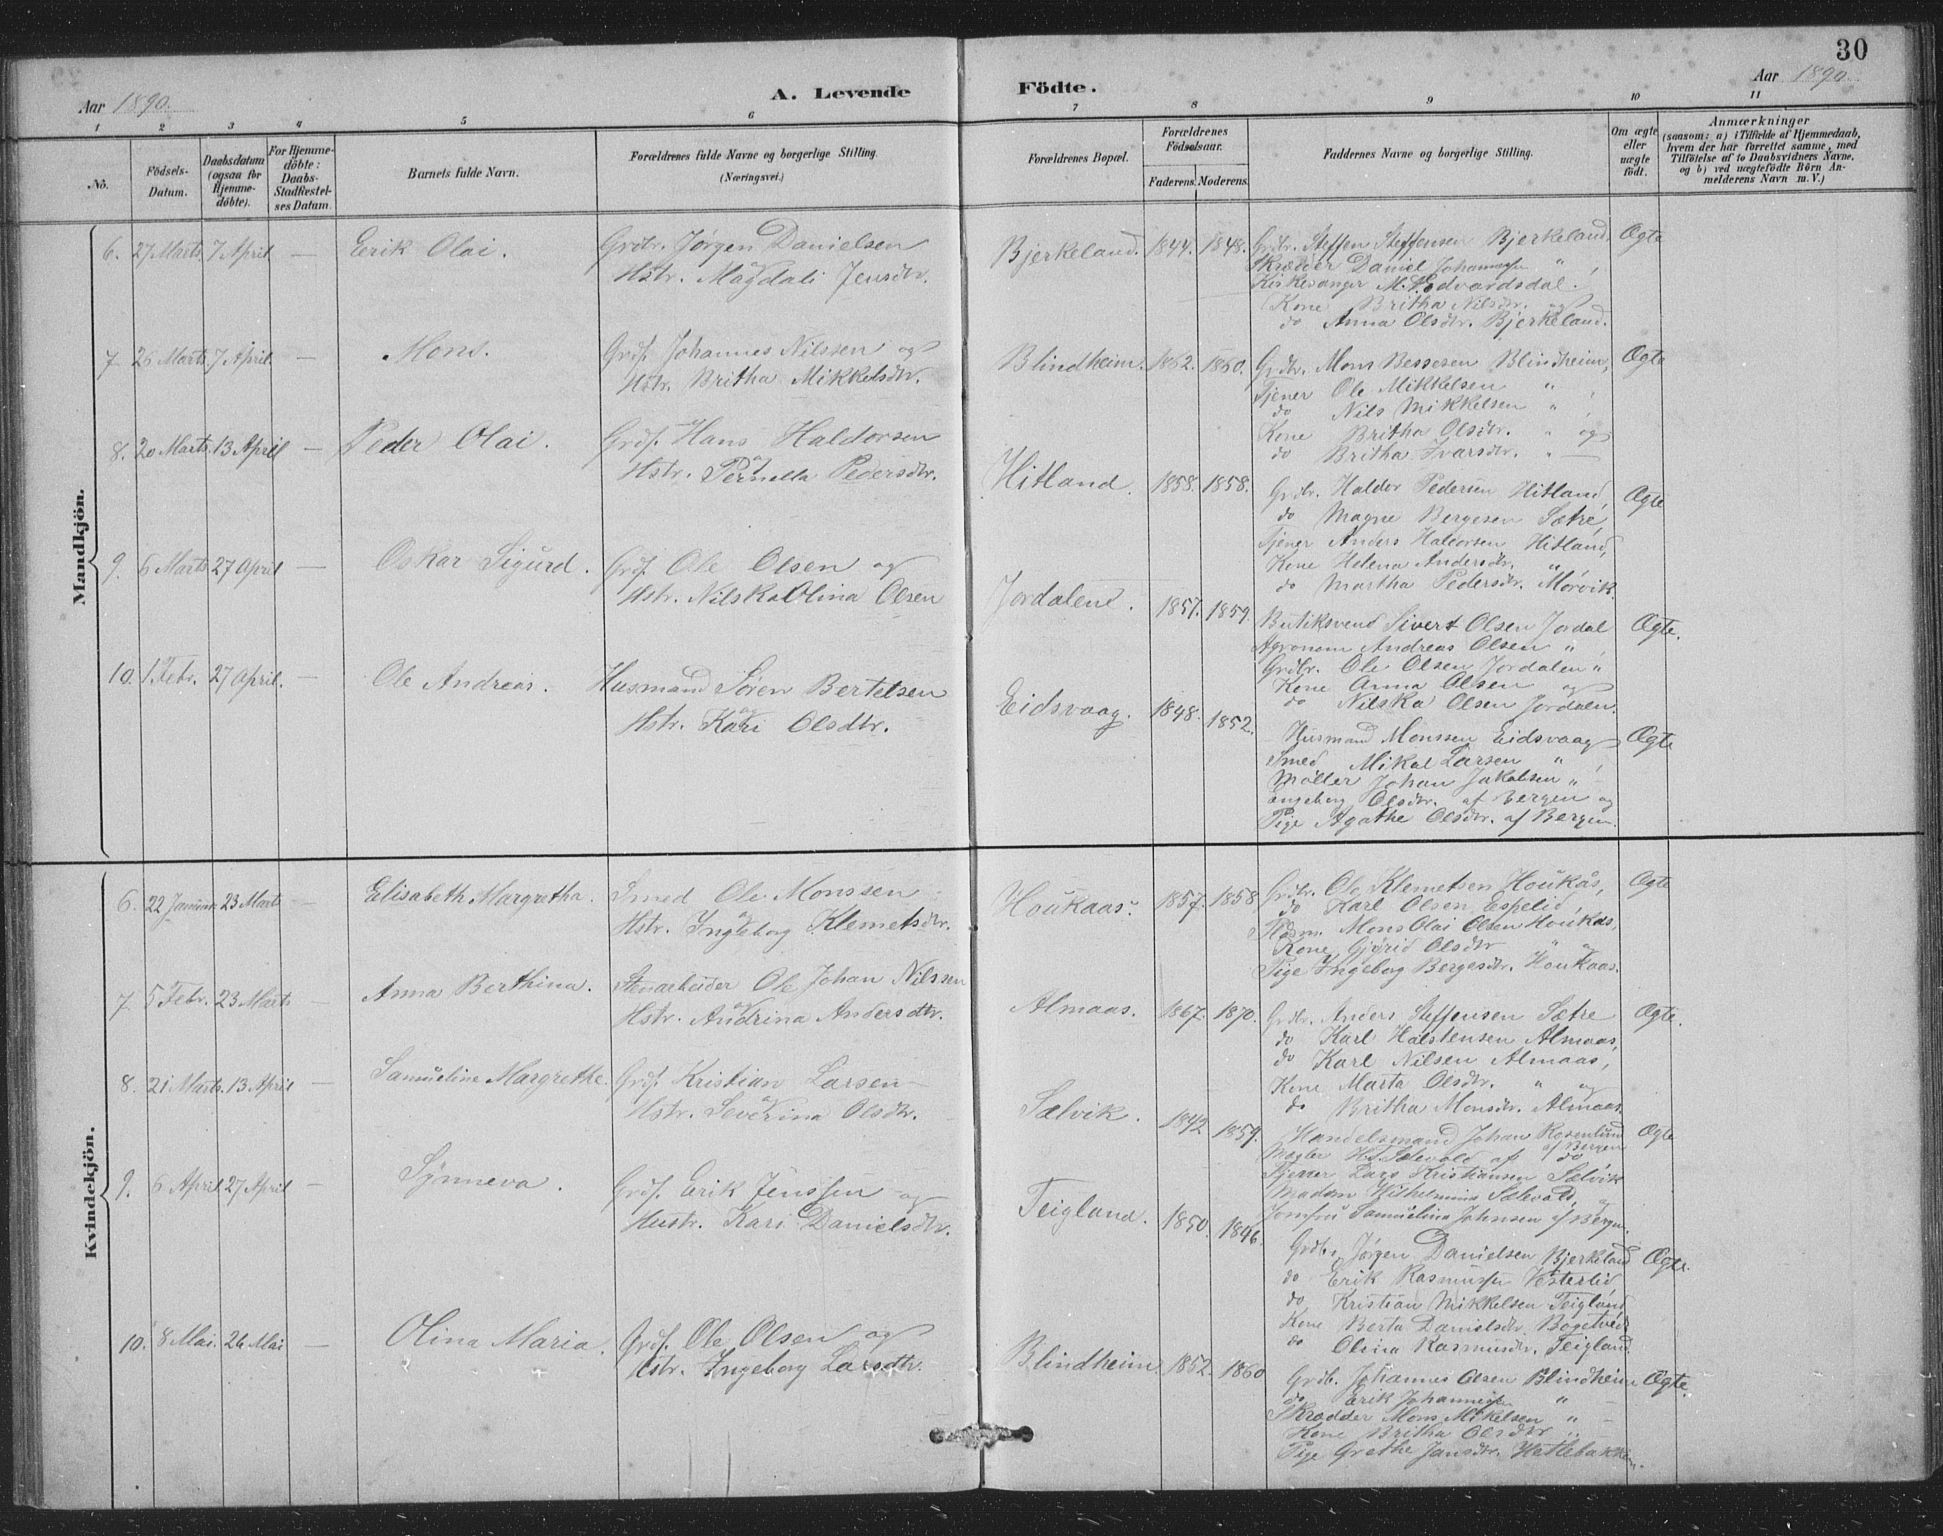 30
Aar 1890.
A. Levende Födte.
Aar 1890.
1 2 3 4 5 6 7 8 9 10 11
No.
Födsels-Datum.
Daabsdatum (ogsaa for Hjemmedöbte).
For Hjemmedöbte: Daabs-Stadfestelses Datum.
Barnets fulde Navn.
Forældrenes fulde Navne og borgerlige Stilling.
(Næringsvei.)
Forældrenes Bopæl.
Forældrenes Födselsaar.
Faderens. Moderens.
Faddernes Navne og borgerlige Stilling.
Om ægte eller uægte födt.
Anmærkninger
(saasom: a) i Tilfælde af Hjemmedaab, hvem der har forrettet samme, med Tilföielse af to Daabsvidners Navne, og b) ved uægtefödte Börn Anmelderens Navn m. V.)
Mandkjön.
6. 27 Marts. 7 April. — Erik Olai.
Grdbr. Jørgen Danielsen
og
Hstr. Magdali Jensdtr.
Bjerkeland. 1844. 1848.
Grdbr. Steffen Steffensen Bjerkeland,
Skrædder Daniel Johannessen " ,
Kirkesanger M. Edvardsdal.
Kone Britha Nilsdtr. og
do Anna Olsdtr. Bjerkeland.
Ægte
7 26 Marts 7 April. — Mons.
Grdf. Johannes Nilssen og
Hstr. Britha Mikkelsdtr.
Blindheim. 1862. 1860.
Grdbr. Mons Bessesen Blindheim,
Tjener Ole Mikkelsen " ,
do Nils Mikkelsen " ,
Kone Britha Olsdtr. " og
do Britha Ivarsdtr. "
Ægte
8. 20 Marts. 13 April — Peder Olai.
Grdf. Hans Haldorsen
og
Hstr. Pernella Pedersdtr.
Hitland. 1858. 1858.
Grdbr. Haldor Pedersen Hitland,
do Magne Bergesen Sætre,
Tjener Anders Haldorsen Hitland,
Kone Helena Andersdtr. "
do Martha Pedersdtr. Morvik.
Ægte
9. 6 Marts 27 April — Oskar Sigurd.
Grdf. Ole Olsen og
Hstr. Nilska Olina Olsen
Jordalene. 1857. 1859.
Butiksvend Sivert Olsen Jordal
Agronom Andreas Olsen " ,
Grdbr. Ole Olsen Jordalen "
Kone Anna Olsen og
do Nilska Olsen Jordalen.
Ægte.
10. 1 Febr. 27 April. — Ole Andreas.
Husmand Søren Bertelsen
og
Hstr. Kari Olsdtr.
Eidsvaag. 1848. 1852.
Husmand Monssen Eidsvaag
Smed Mikal Larsen " ,
Møller Johan Jakobsen " –
Ingeborg Olsdtr. af Bergen og
Pige Agathe Olsdtr. af Bergen.
Ægte
Kvindekjön.
6. 22 Januar. 23 Marts — Elisabeth Margretha.
Smed Ole Monssen
og
Hstr. Ingeborg Klemetsdtr.
Houkaas. 1857. 1858
Grdbr. Ole Klemetsen Houkås,
do Karl Olsen Espelid,
Mons Olai Olsen Houkås,
Kone Gjørid Olsdtr " "
Pige Ingeborg Bergesdtr. Houkaas.
Ægte
7. 5 Febr. 23 Marts — Anna Berthina.
Stenarbeider Ole Johan Nilssen
og
Hstr. Andrina Andersdtr.
Almaas. 1867. 1870.
Grdbr. Anders Steffensen Sætre
do Karl Halstensen Almaas,
do Karl Nilsen Almaas,
Kone Marta Olsdtr. " og
do Britha Monsdtr. Almaas.
Ægte.
8. 21 Marts. 13 April — Samueline Margrethe.
Grdf. Kristian Larsen
og
Hstr. Severina Olsdtr.
Sælvik. 1842 1859.
Handelsmand Johan Rosenlund
af Bergen
Mægler Sælevold af do
Tjener Lars Kristiansen Sælvik
Madam Wilhelmina Sælevold, og
Jomfru Samuelina Johnsen af Bergen.
Ægte
9. 6 April. 27 April — Synneva.
Grdf. Erik Jenssen og
Hustr. Kari Danielsdtr.
Teigland. 1850. 1846.
Grdbr. Jørgen Danielsen Bjerkeland
do Erik Rasmussen Vesterlid
do Kristian Mikkelsen Teigland
Kone Berta Danielsdtr. Bogetvedt
do Olina Rasmusdtr. Teigland.
Ægte.
10. 8 Mai. 26 Mai — Olina Maria.
Grdf. Ole Olsen og
Hstr. Ingeborg Larsdtr.
Blindheim. 1852. 1860
Grdb. Johannes Olsen Blindheim
do Erik Johannessen " –
Skrædder Mons Mikelsen " –
Kone Britha Olsdtr "
Pige Grethe Jansdtr. Hatlebakken.
Ægte.